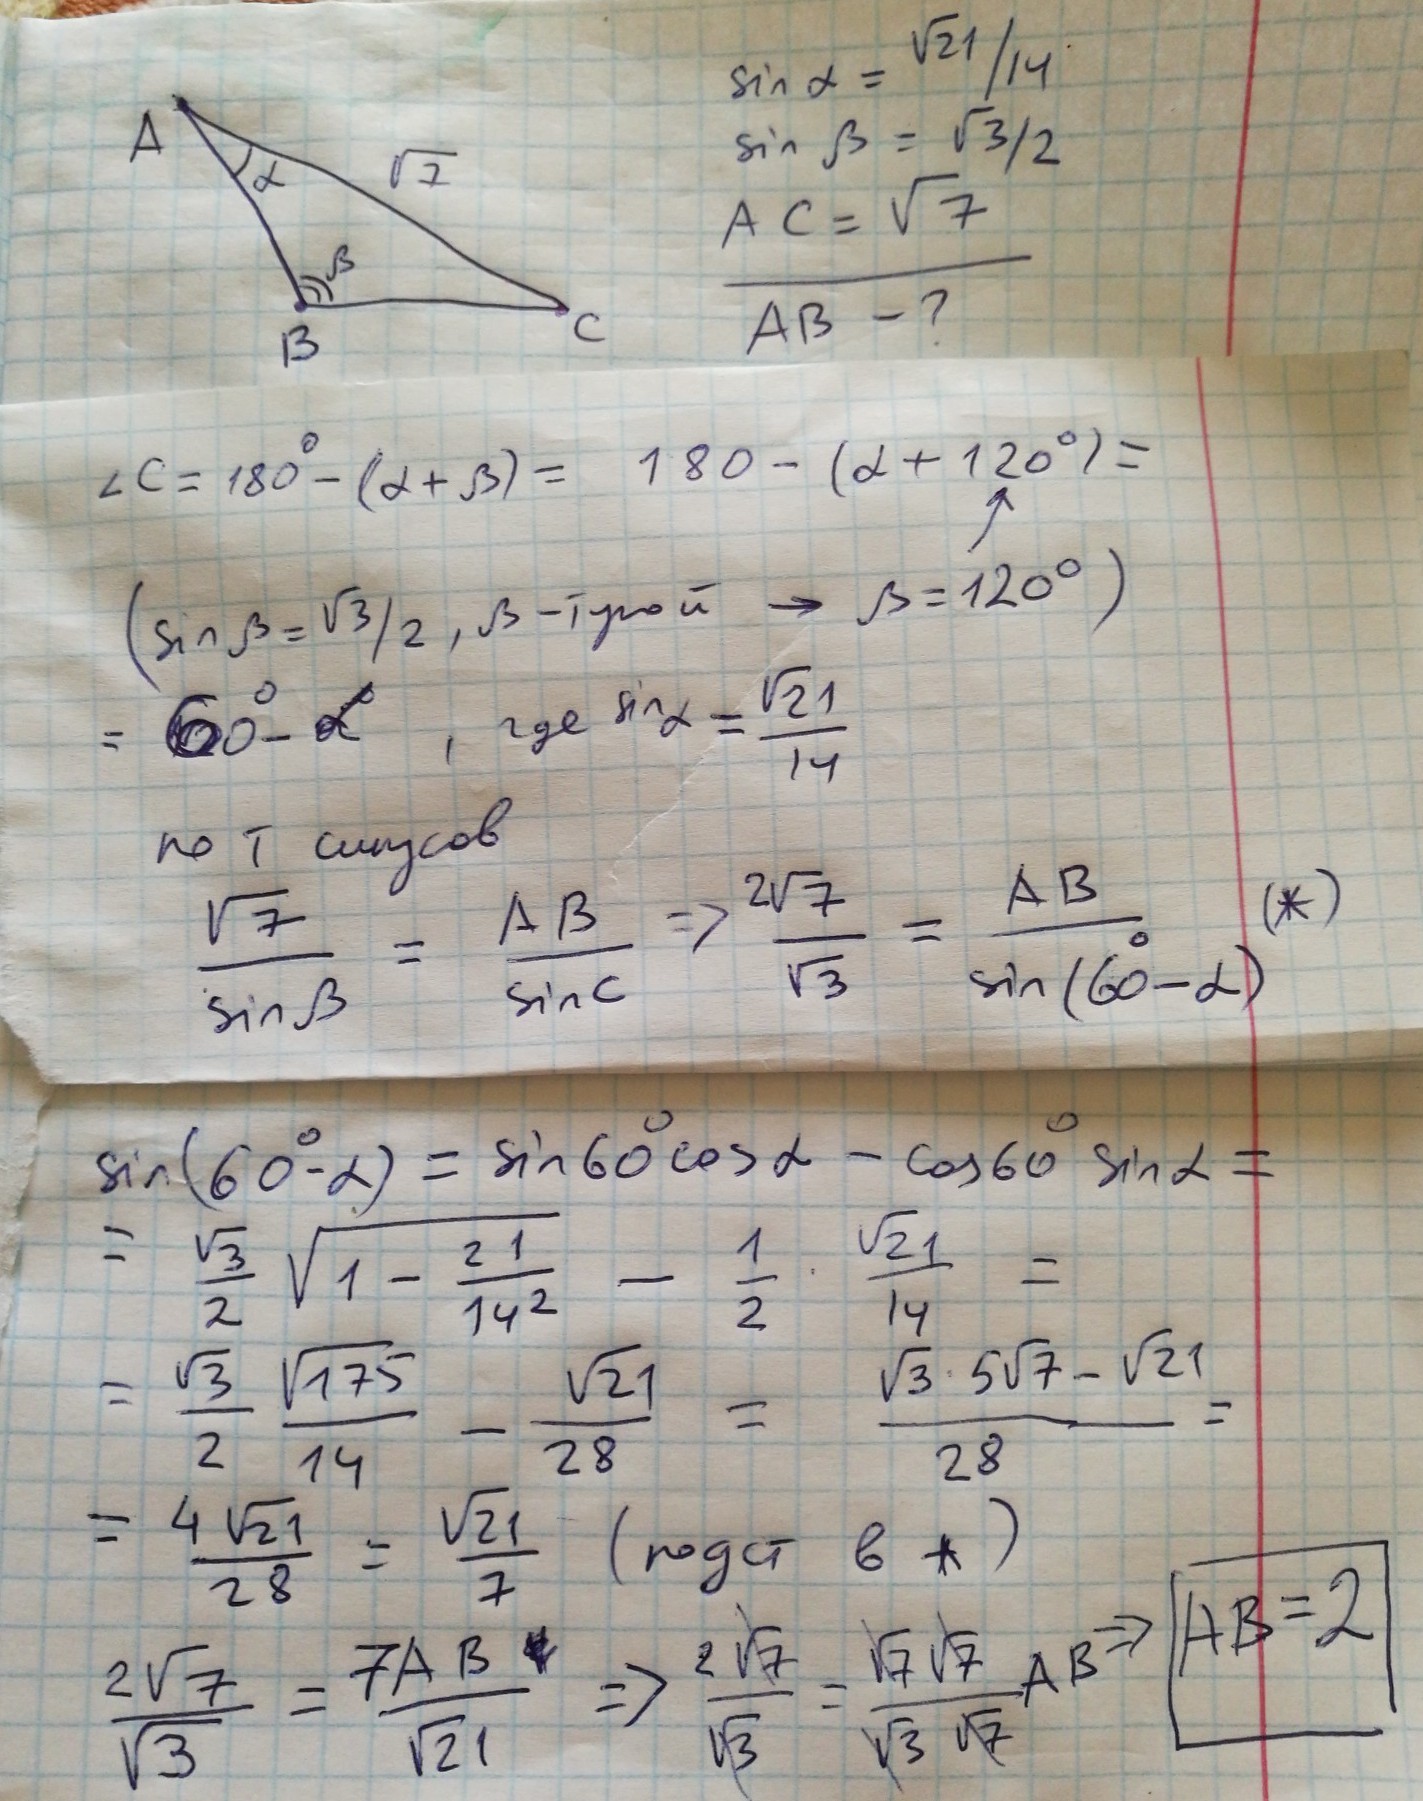 A
α
√7
β
B
C
sin α = √21/14
sin β = √3/2
AC = √7
AB - ?
∠C = 180° - (α + β) = 180 - (α + 120°) =
(sin β = √3/2, β - тупой → β = 120°)
= 60° - α, где sin α = √21/14
по т синусов
√7/sin β = AB/sin C => 2√7/√3 = AB/sin(60° - α) (*)
sin(60° - α) = sin 60° cos α - cos 60° sin α =
= √3/2 √(1 - 21/14²) - 1/2 · √21/14 =
= √3/2 √175/14 - √21/28 = (√3 · 5√7 - √21)/28 =
= 4√21/28 = √21/7 (подст в *)
2√7/√3 = 7AB/√21 => 2√7/√3 = √7√7/√3√7 AB => AB = 2